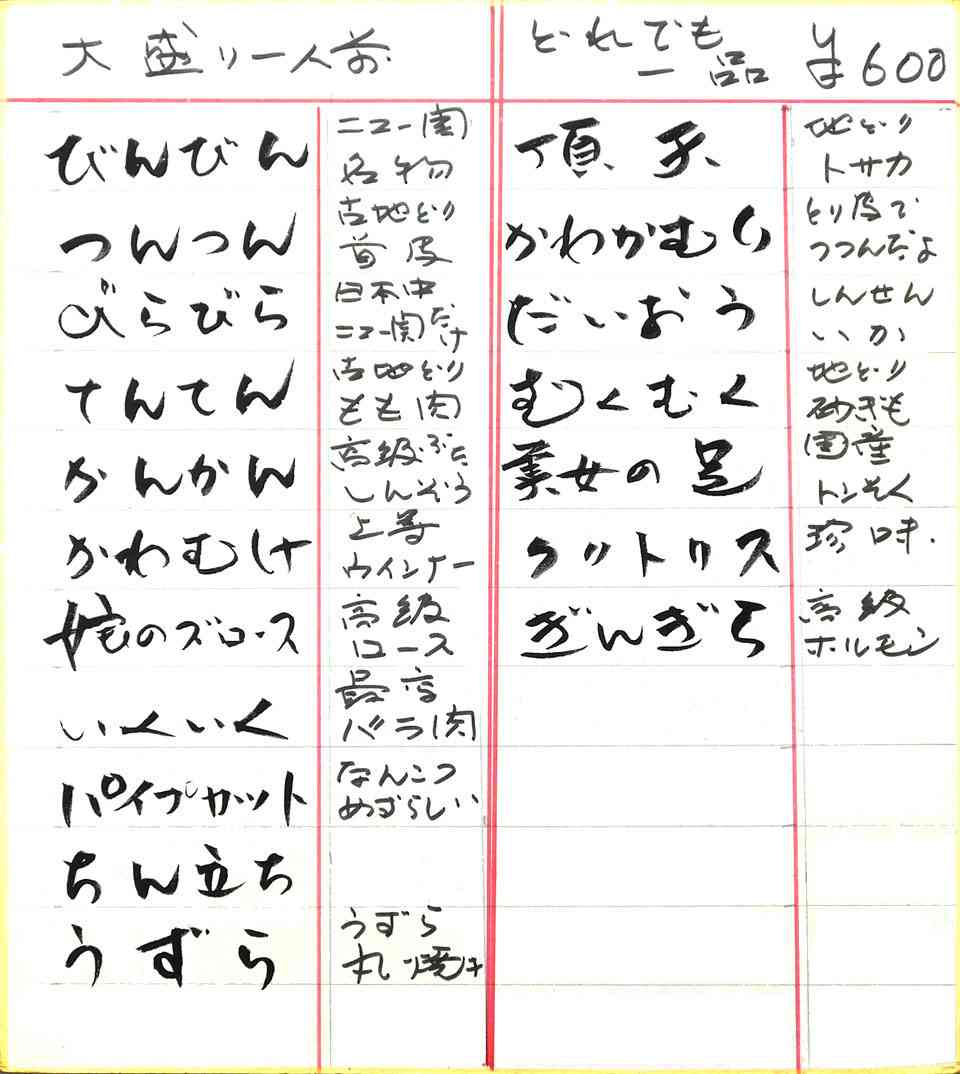 大盛り一人前
びんびん
ニュー関
名物
つんつん
古地どり
首皮
びらびら
日本中
ニュー関だけ
てんてん
古地どり
もも肉
かんかん
高級ぶた
しんぞう
かわむけ
上等
ウインナー
のズロース
高級
ロース
いくいく
最高
バラ肉
パイプカット
なんこつ
めずらしい
ちん立ち
うずら
うずら
丸焼け
どれでも
一品 ¥600
頂天
地どり
トサカ
かわかむり
とり皮で
つつんだよ
だいおう
しんせん
いか
むくむく
地どり
砂ぎも
美女の足
国産
トンそく
クリトリス
珍味.
ぎんぎら
高級
ホルモン